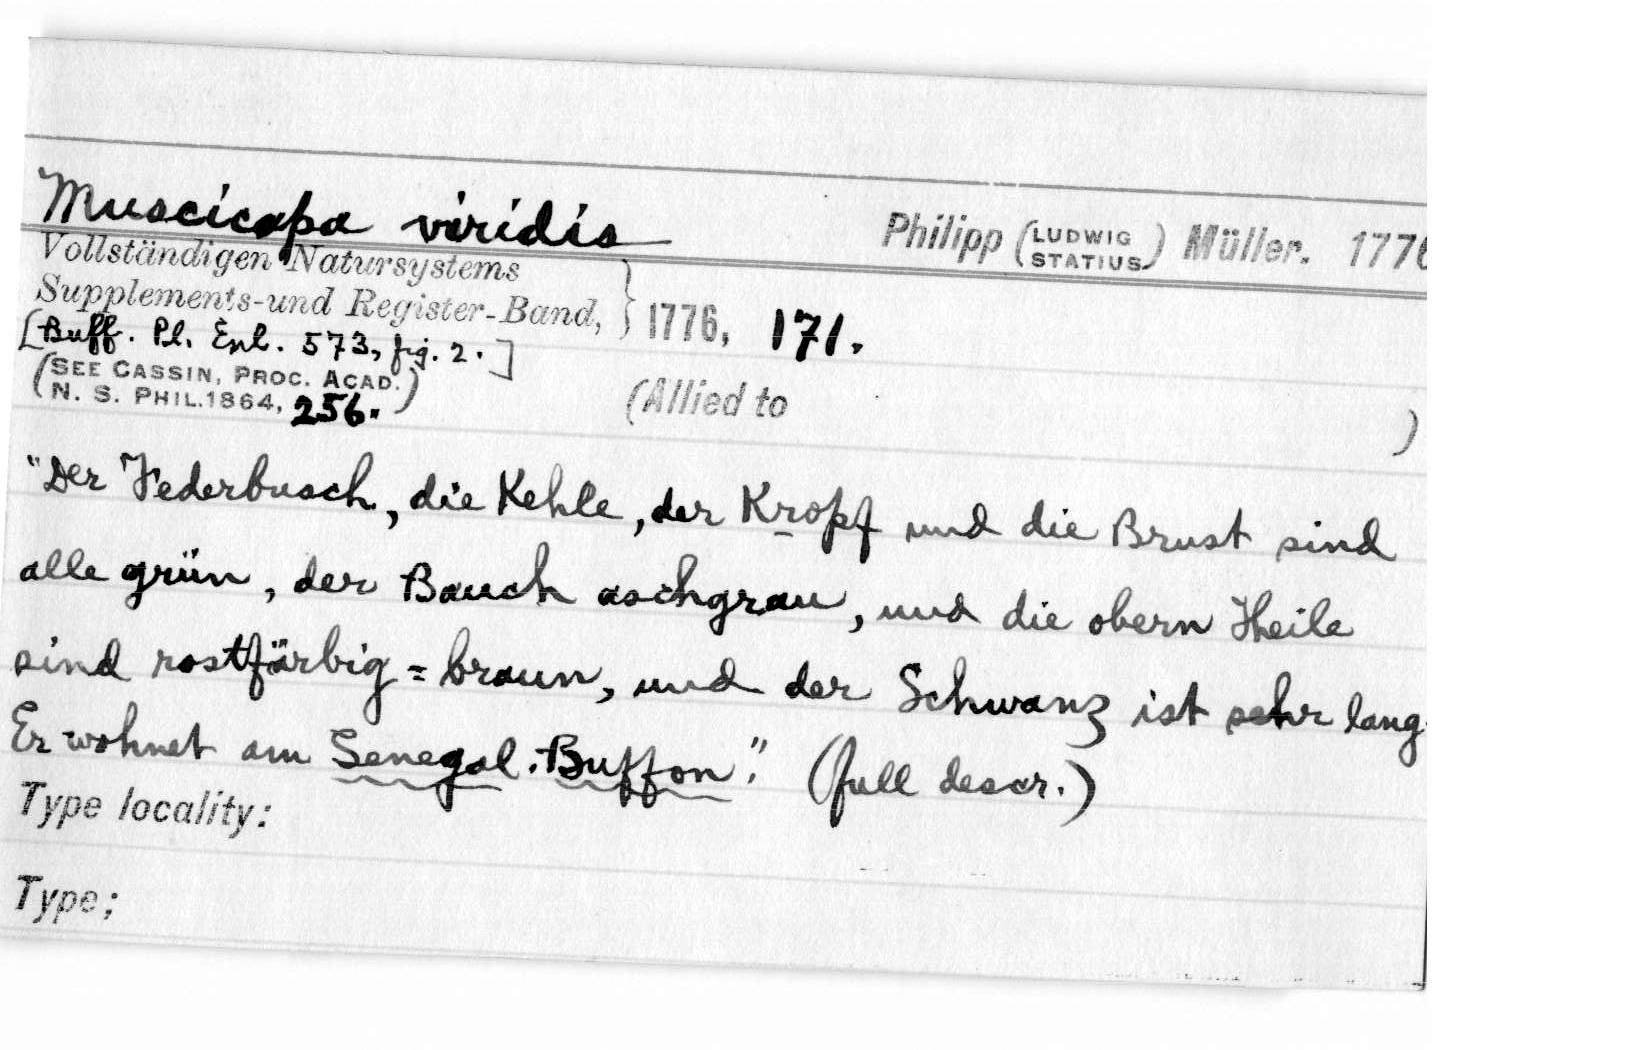 Muscicapa viridis Philipp (LUDWIG STATIUS) Müller. 1776
Vollständigen Natursystems
Supplements-und Register-Band, } 1776, 171.
[Buff. Pl. Enl. 573, fig. 2.]
(SEE CASSIN, PROC. ACAD.
N. S. PHIL. 1864, 256.) (Allied to )
"Der Federbusch, die Kehle, der Kropf und die Brust sind
alle grün, der Bauch aschgrau, und die obern Theile
sind rostfärbig = braun, und der Schwanz ist sehr lang
Er wohnet am Senegal. Buffon." (full descr.)
Type locality:
Type;